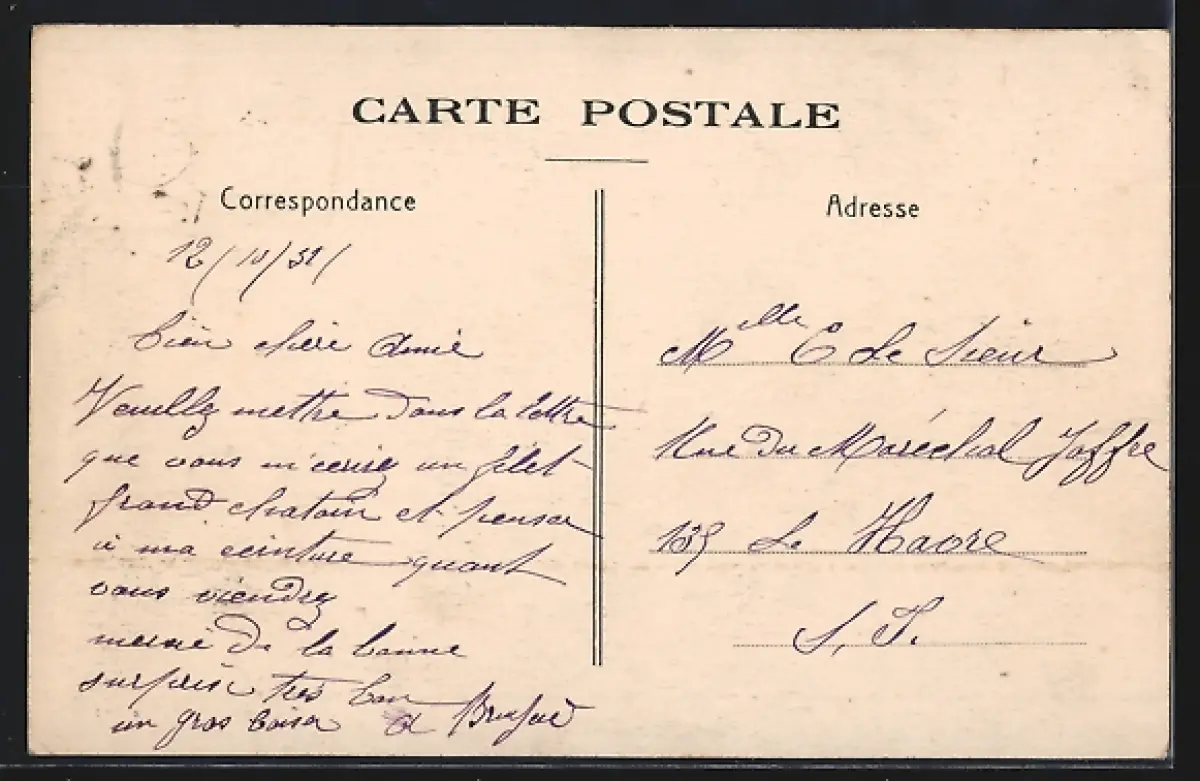 CARTE POSTALE
Correspondance
12/10/31/
bien chère Amie
Veuillez mettre dans la lettre
que vous m'ecrirez un filet
grand chatain et penser
à ma ceinture quant
vous viendrez
merci de la bonne
surprise tres bon
un gros baiser
Adresse
Mlle C Le Sieur
Rue du Maréchal Joffre
135 Le Havre
S. I.